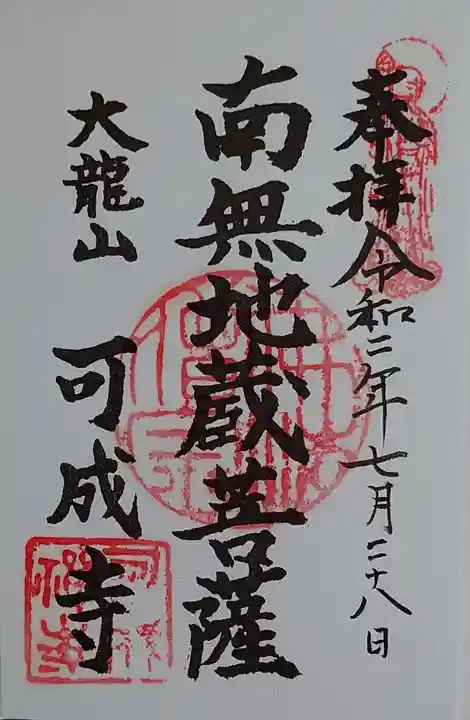 奉拝 令和二年七月二十八日
南無地蔵菩薩
大龍山 可成寺